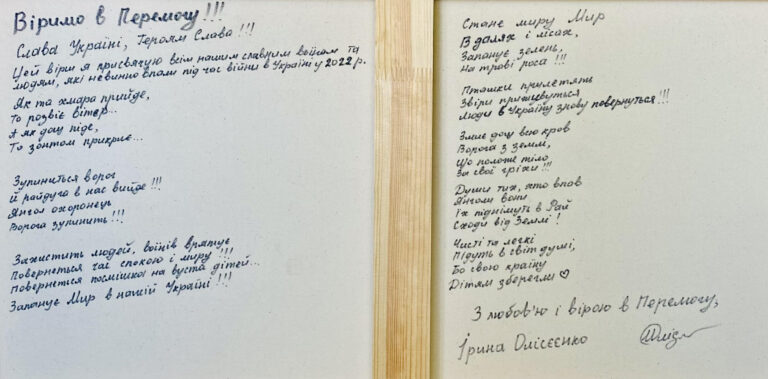 Віримо в Перемогу!!!
Слава Україні, Героям Слава!!!
Цей вірш я присвячую всім нашим славним воїнам та
людям, які невинно впали під час війни в Україні у 2022 р.
Як та хмара прийде,
То розвіє вітер...
А як дощ піде,
То зонтом прикриє...
Зупиниться ворог
Й райдуга в нас вийде!!!
Янгол охоронець
Ворога зупинить!!!
Захистить людей, воїнів врятує
Повернеться час спокою і миру!!!
Повернется посмішка на вуста дітей...
Запанує Мир в нашій Україні!!!
Стане миру Мир
В далях і лісах,
Запанує зелень,
На траві роса!!!
Пташки прилетять
Звірі приживуться
Люди в Україну знову повернуться!!!
Змиє дощ всю кров
Ворога з землі,
Що положе тіло
За свої гріхи!!!
Душі тих, хто впав
Янголи вони
Їх піднімуть в Рай
Сходи від Землі!
Чисті та легкі
Підуть в світ думі,
Бо свою країну
Дітям зберегли ♡
З любов'ю і вірою в Перемогу,
Ірина Олісєєнко